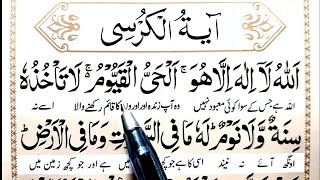 آيَةُ الْكُرْسِى
اَللّٰهُ لَاۤ اِلٰهَ اِلَّا هُوَ ۚ اَلْحَیُّ الْقَیُّوْمُ ۚ لَا تَاْخُذُهٗ
اللہ ہے جس کے سوا کوئی معبود نہیں وہ آپ زندہ اور اوروں کا قائم رکھنے والا اسے نہ
سِنَةٌ وَّلَا نَوْمٌ ؕ لَهٗ مَا فِی السَّمٰوٰتِ وَمَا فِی الْاَرْضِ ؕ
اونگھ آئے نہ نیند اسی کا ہے جو کچھ میں ہے اور جو کچھ زمین میں